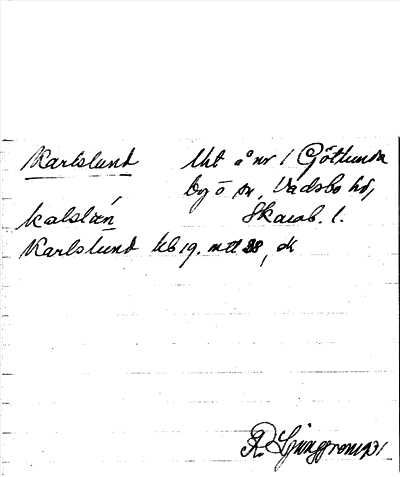 Karlslund Uht å nr 1 Götlunda
by ö sn, Vadsbo hd,
kalslœn Skarab. l.
Karlslund kb 19. mtl 28, dk
R. Ljunggren 1931